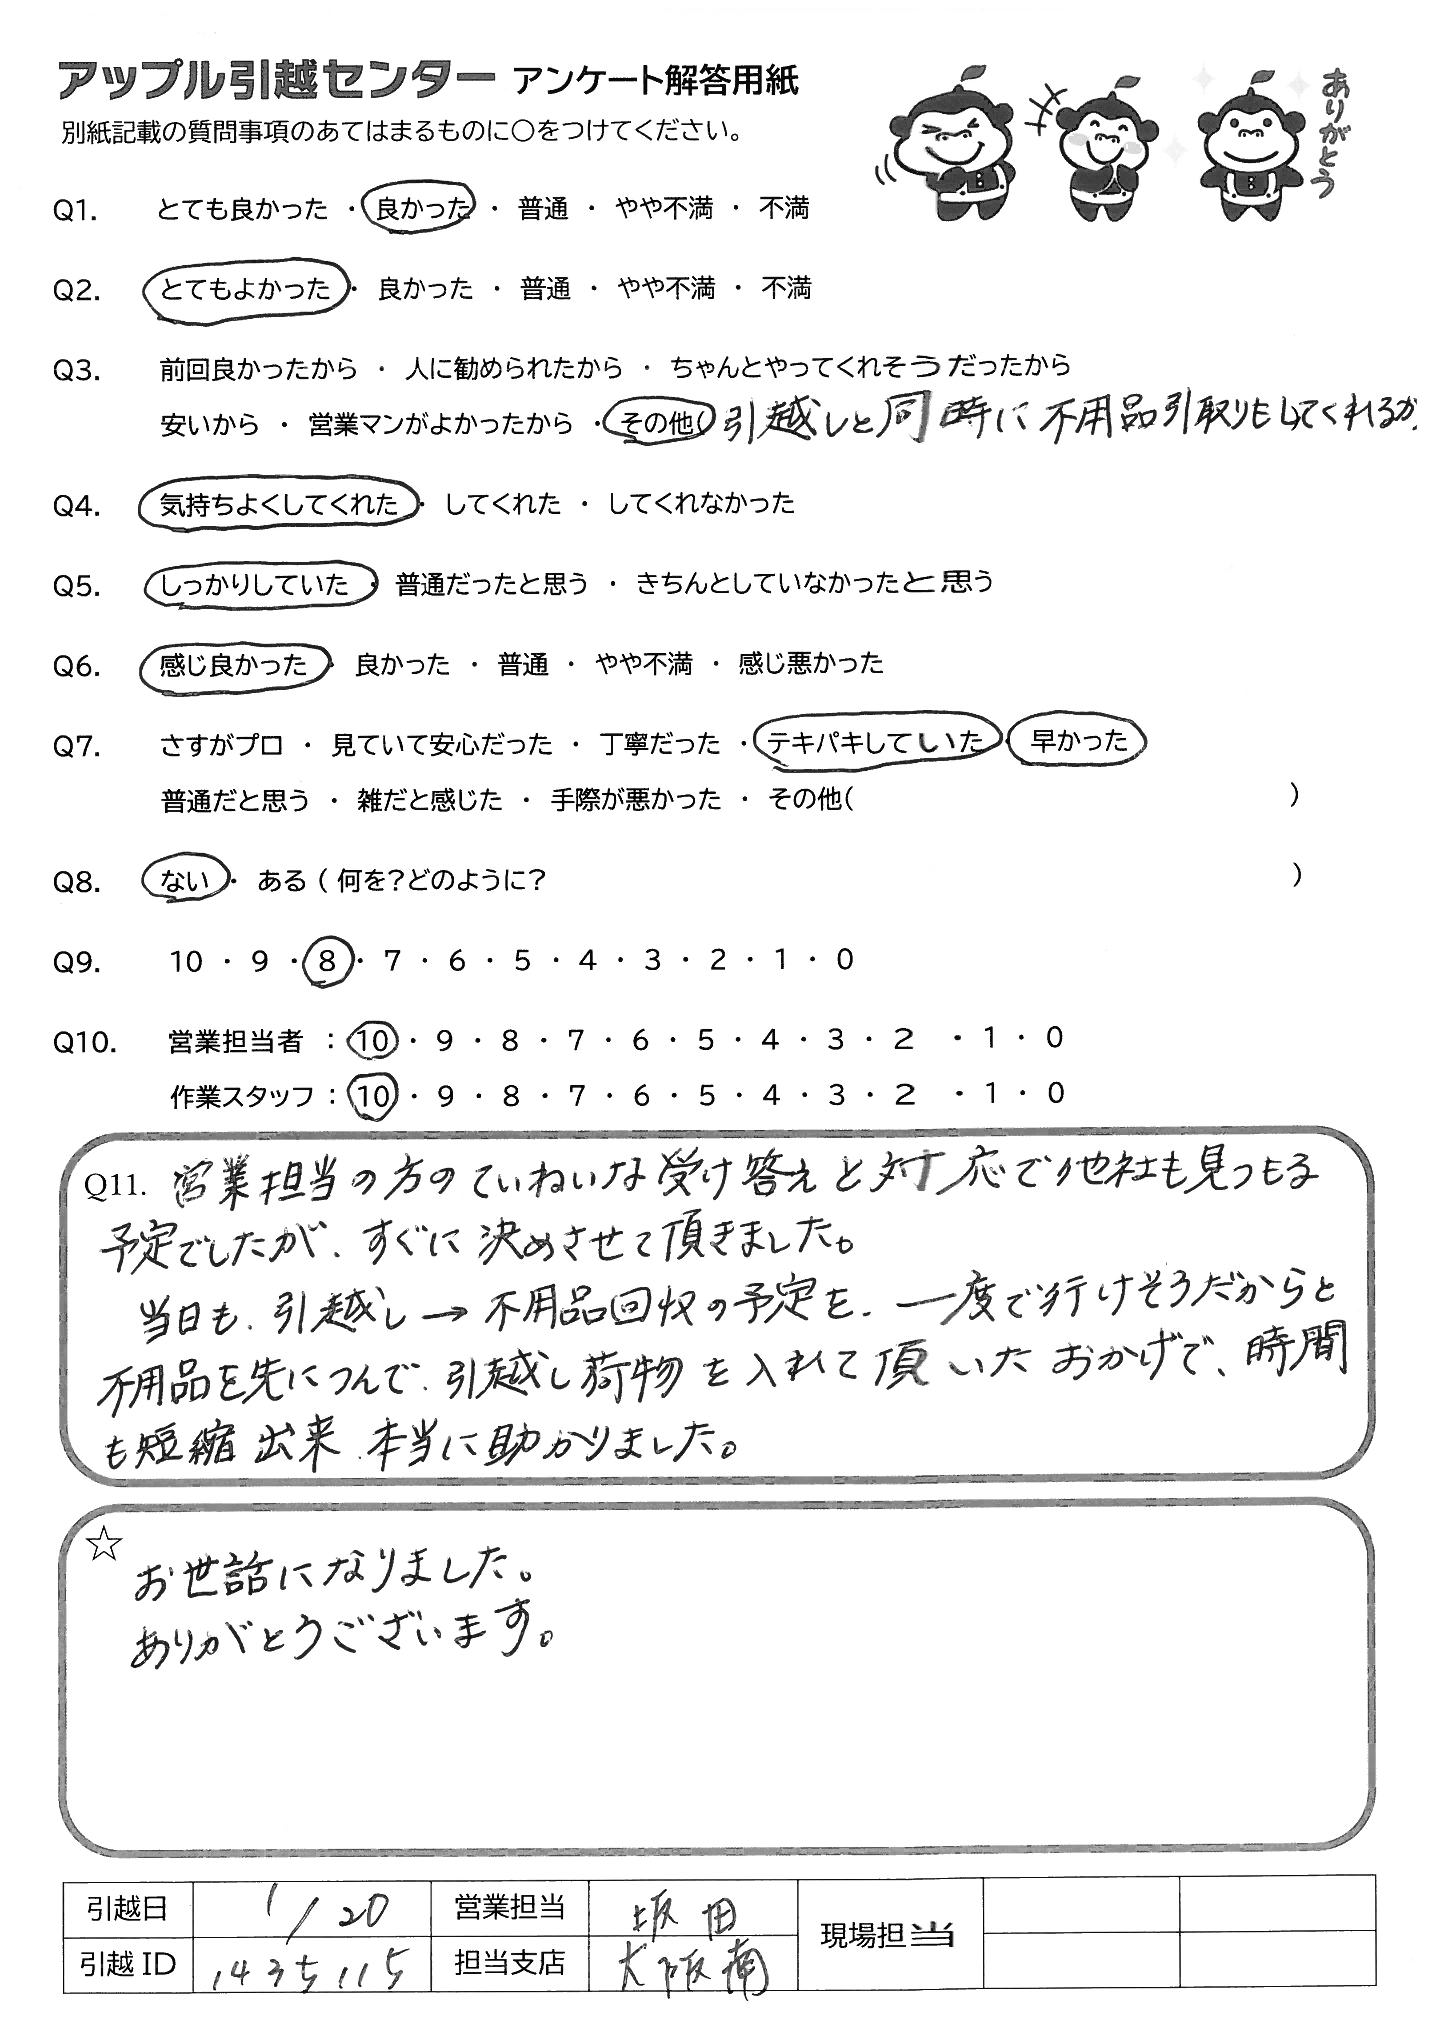 アップル引越センター アンケート解答用紙
ありがとう
別紙記載の質問事項のあてはまるものに○をつけてください。
Q1. とても良かった ・ 良かった ・ 普通 ・ やや不満 ・ 不満
Q2. とてもよかった ・ 良かった ・ 普通 ・ やや不満 ・ 不満
Q3. 前回良かったから ・ 人に勧められたから ・ ちゃんとやってくれそうだったから
安いから ・ 営業マンがよかったから ・ その他( 引越しと同時に不用品引取りもしてくれるか
Q4. 気持ちよくしてくれた ・ してくれた ・ してくれなかった
Q5. しっかりしていた ・ 普通だったと思う ・ きちんとしていなかったと思う
Q6. 感じ良かった ・ 良かった ・ 普通 ・ やや不満 ・ 感じ悪かった
Q7. さすがプロ ・ 見ていて安心だった ・ 丁寧だった ・ テキパキしていた ・ 早かった
普通だと思う ・ 雑だと感じた ・ 手際が悪かった ・ その他( )
Q8. ない ・ ある ( 何を?どのように? )
Q9. 10 ・ 9 ・ 8 ・ 7 ・ 6 ・ 5 ・ 4 ・ 3 ・ 2 ・ 1 ・ 0
Q10. 営業担当者 : 10 ・ 9 ・ 8 ・ 7 ・ 6 ・ 5 ・ 4 ・ 3 ・ 2 ・ 1 ・ 0
作業スタッフ : 10 ・ 9 ・ 8 ・ 7 ・ 6 ・ 5 ・ 4 ・ 3 ・ 2 ・ 1 ・ 0
Q11. 営業担当の方のていねいな受け答えと対応で他社も見つもる
予定でしたが、すぐに決めさせて頂きました。
当日も、引越し→不用品回収の予定を、一度で行けそうだからと
不用品を先につんで、引越し荷物を入れて頂いたおかげで、時間
も短縮出来、本当に助かりました。
☆
お世話になりました。
ありがとうございます。
引越日 1/20 営業担当 坂田 現場担当
引越ID 1435115 担当支店 大阪南